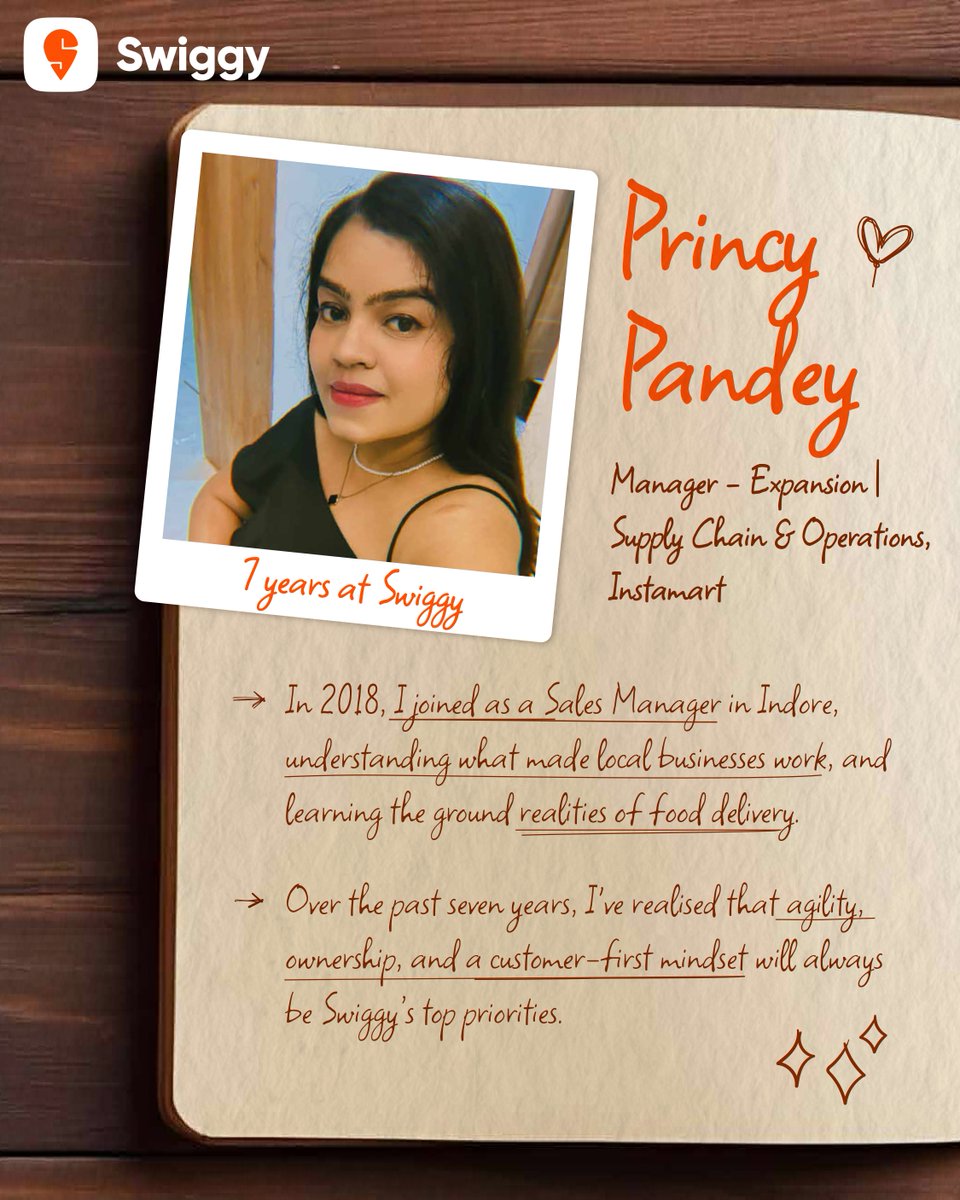 Swiggy
Princy
Pandey
Manager - Expansion |
Supply Chain & Operations,
Instamart
7 years at Swiggy
→ In 2018, I joined as a Sales Manager in Indore,
understanding what made local businesses work, and
learning the ground realities of food delivery.
→ Over the past seven years, I've realised that agility,
ownership, and a customer-first mindset will always
be Swiggy's top priorities.